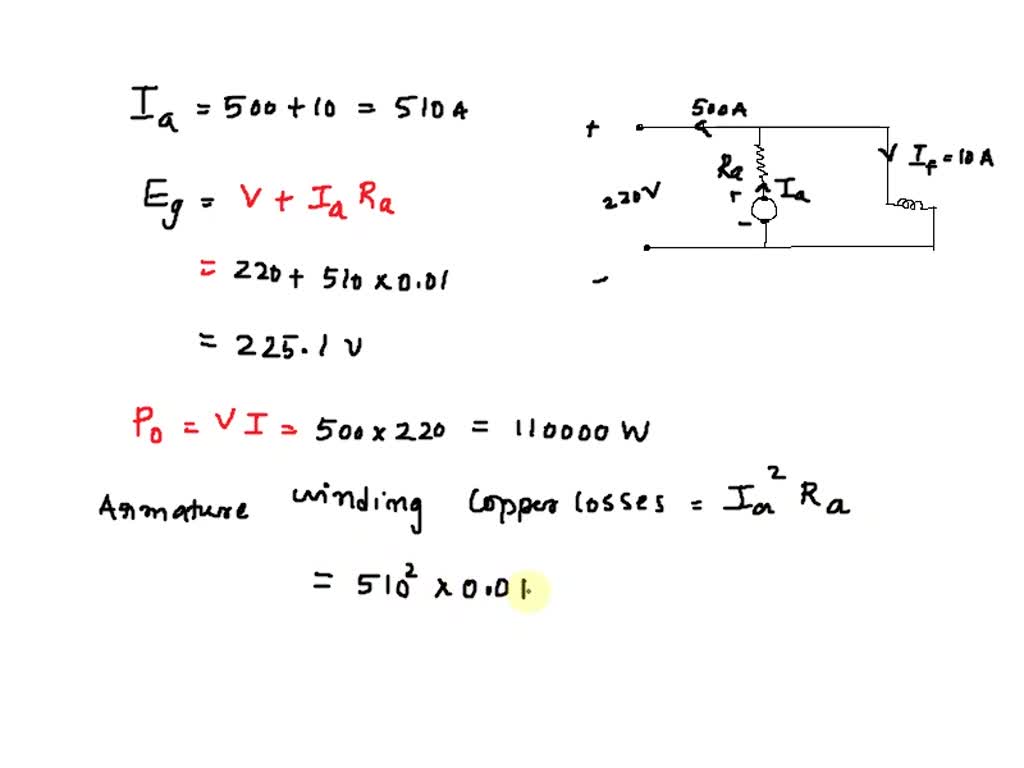 I_a = 500 + 10 = 510 A
E_g = V + I_a R_a
= 220 + 510 × 0.01
= 225.1 V
P_0 = VI = 500 × 220 = 110000 W
Armature winding copper losses = I_a² R_a
= 510² × 0.01
500A
+
R_a
I_a
+
-
I_f = 10 A
220V
-